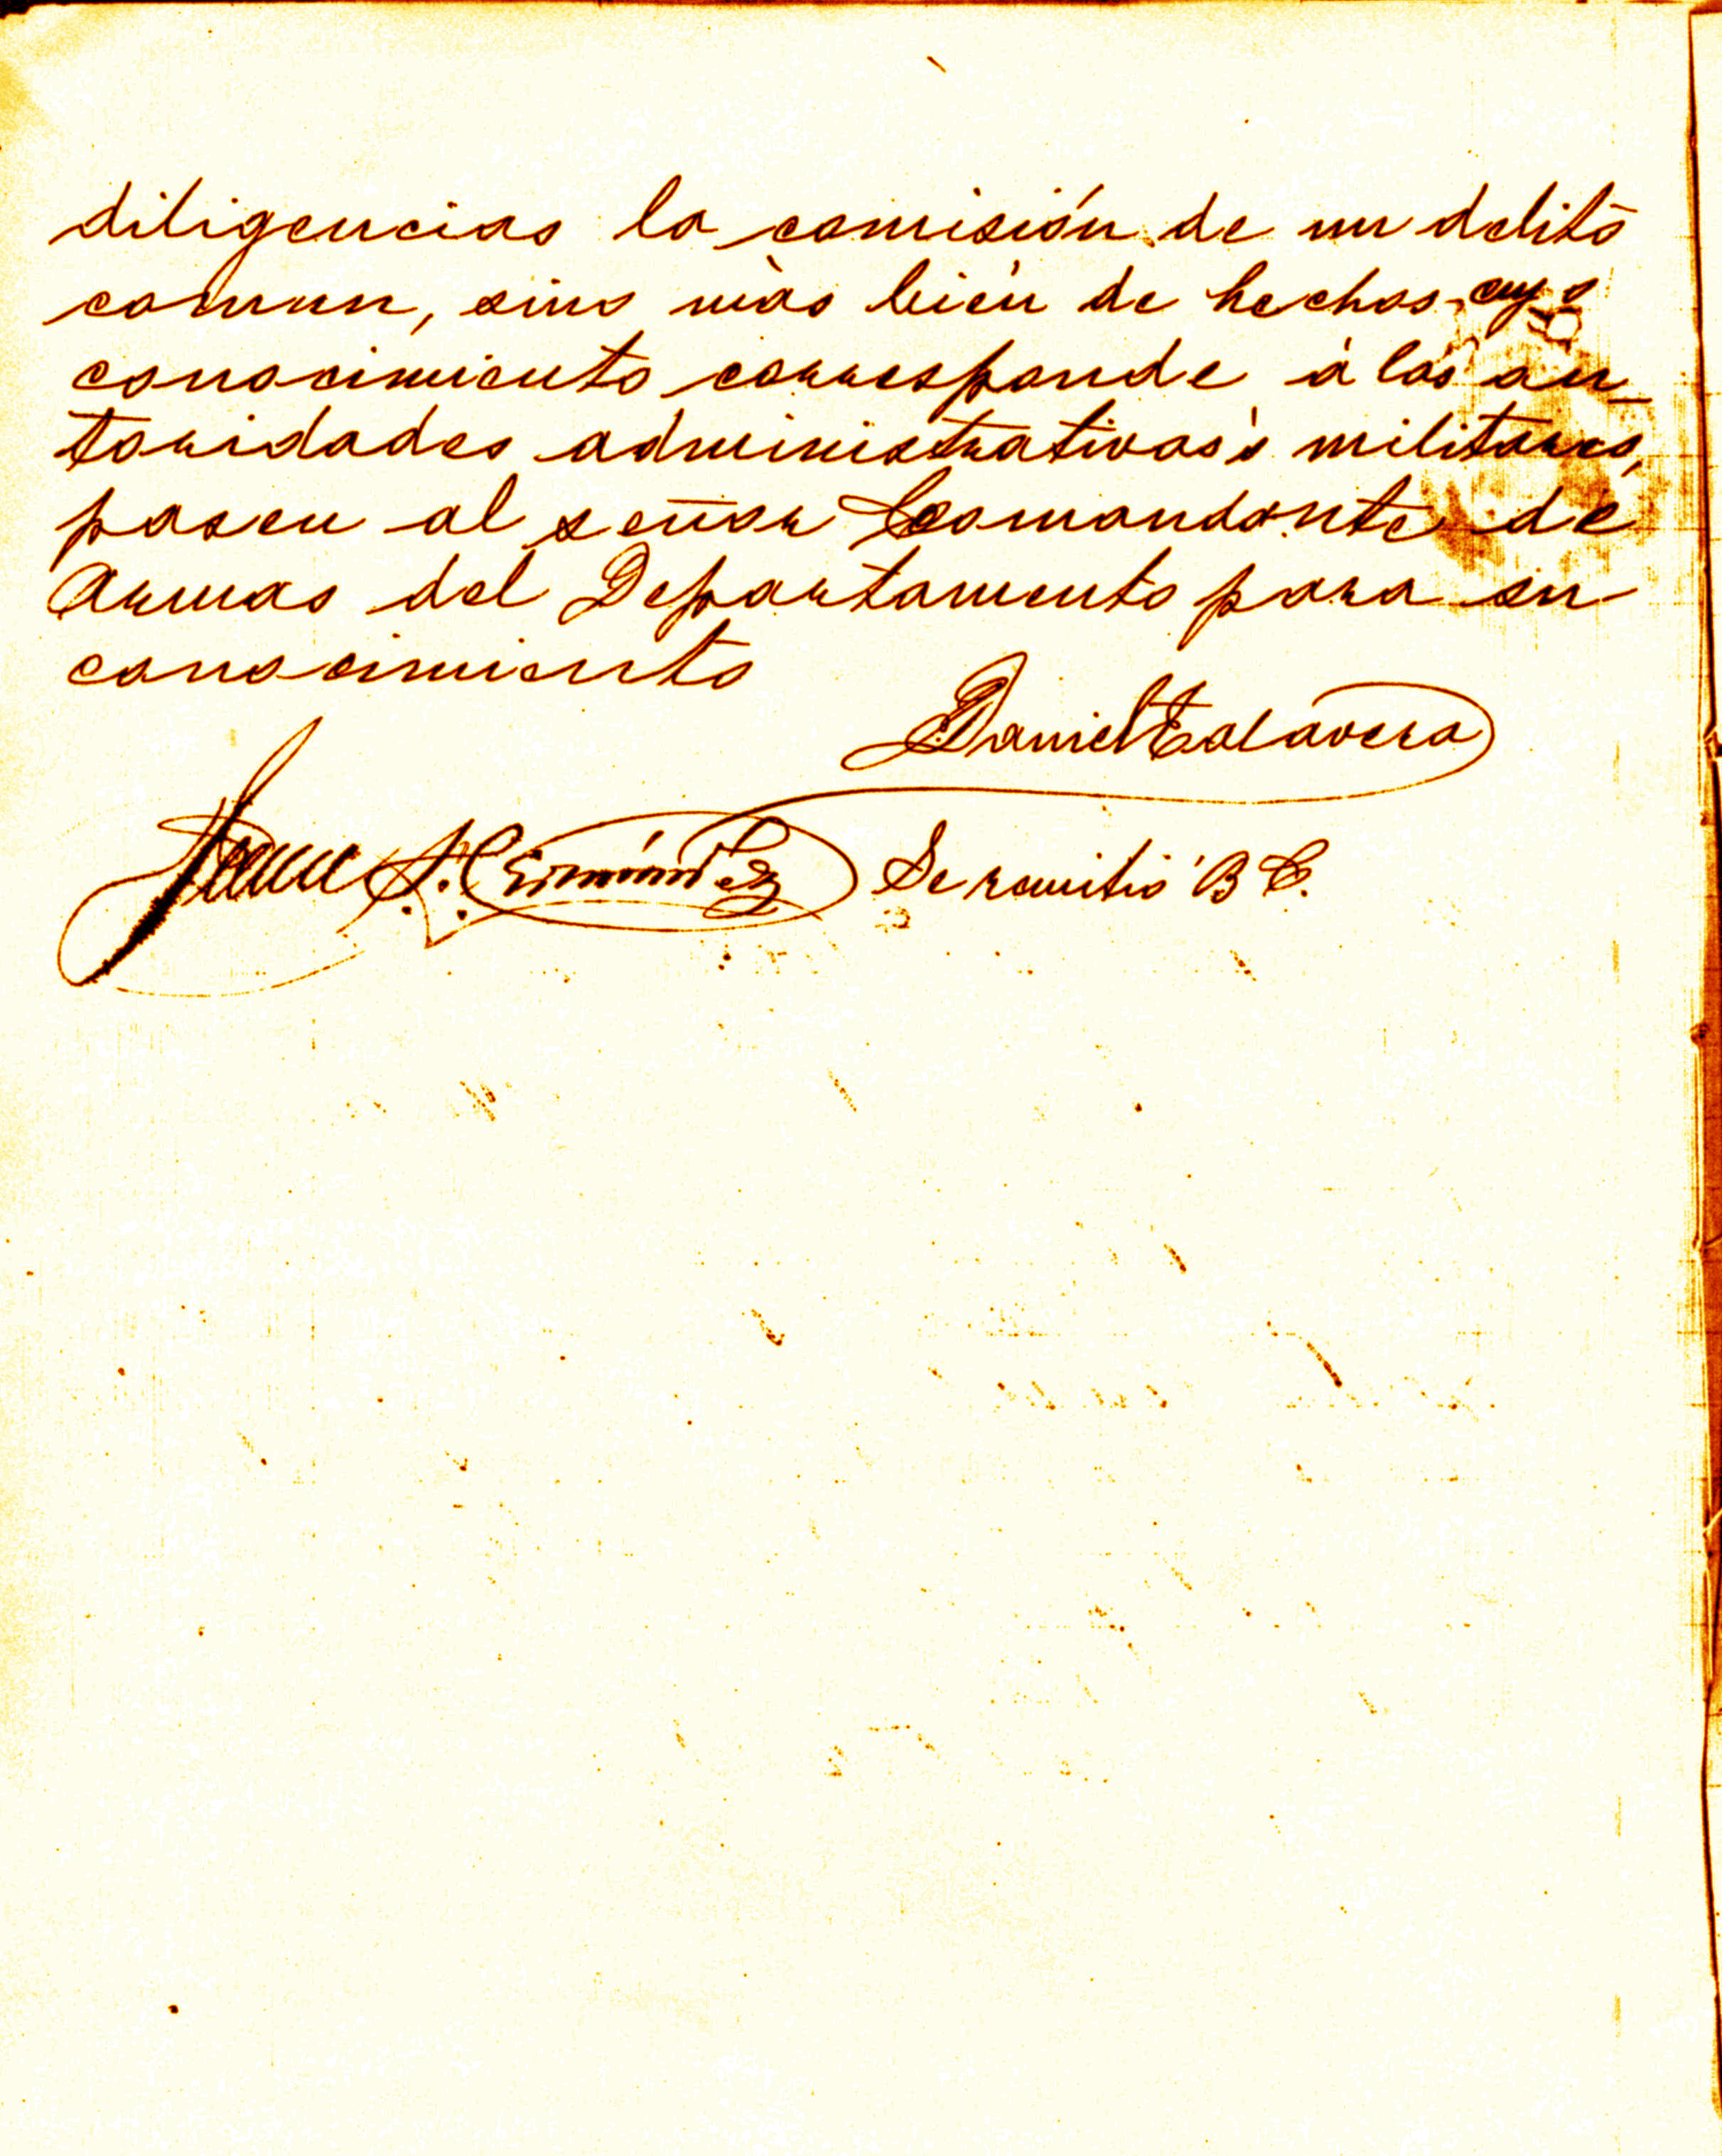 diligencias la comisión de un delito
comun, sino más bién de hechos cuyo
conocimiento corresponde á las au_
toridades administrativas ó militares,
pasen al señor Comandante de
Armas del Departamento para su
conocimiento
Daniel Talavera
Se remitió B C.